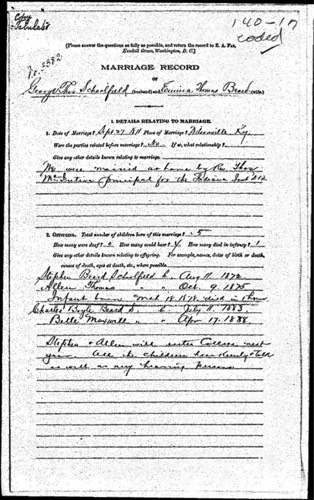 Copy
Tabulated
140-17
coded
No. 2882
[Please answer the questions as fully as possible, and return the record to E. A. Fay,
Kendall Green, Washington, D. C.]
MARRIAGE RECORD
OF
George Thos Schoolfield (husband) and Emma Thomas Beard (wife)
1. DETAILS RELATING TO MARRIAGE.
Date of Marriage? Sept 27 Place of Marriage? Ky.
Were the parties related before marriage? No. If so, what relationship?
Give any other details known relating to marriage.
We were married at home by Rev. Thos.
principal for the Indiana Inst D & D
2. OFFSPRING. Total number of children born of this marriage? 5
How many were deaf? 0 How many could hear? 4 How many died in infancy? 1
Give any other details known relating to offspring. For example, names, dates of birth or death,
causes of death, age at death, etc., where possible.
Stephen Beard Scholfield b. Aug 11. 1872
Allen Thomas " " Oct. 9. 1875
Infant born 1878. died in
Charles Boyle Beard b. July 11. 1883.
Belle Maxwell " " Apr 17. 1888.
Stephen & Allen will enter College next
year. All the children hear & talk
as well as any hearing persons.